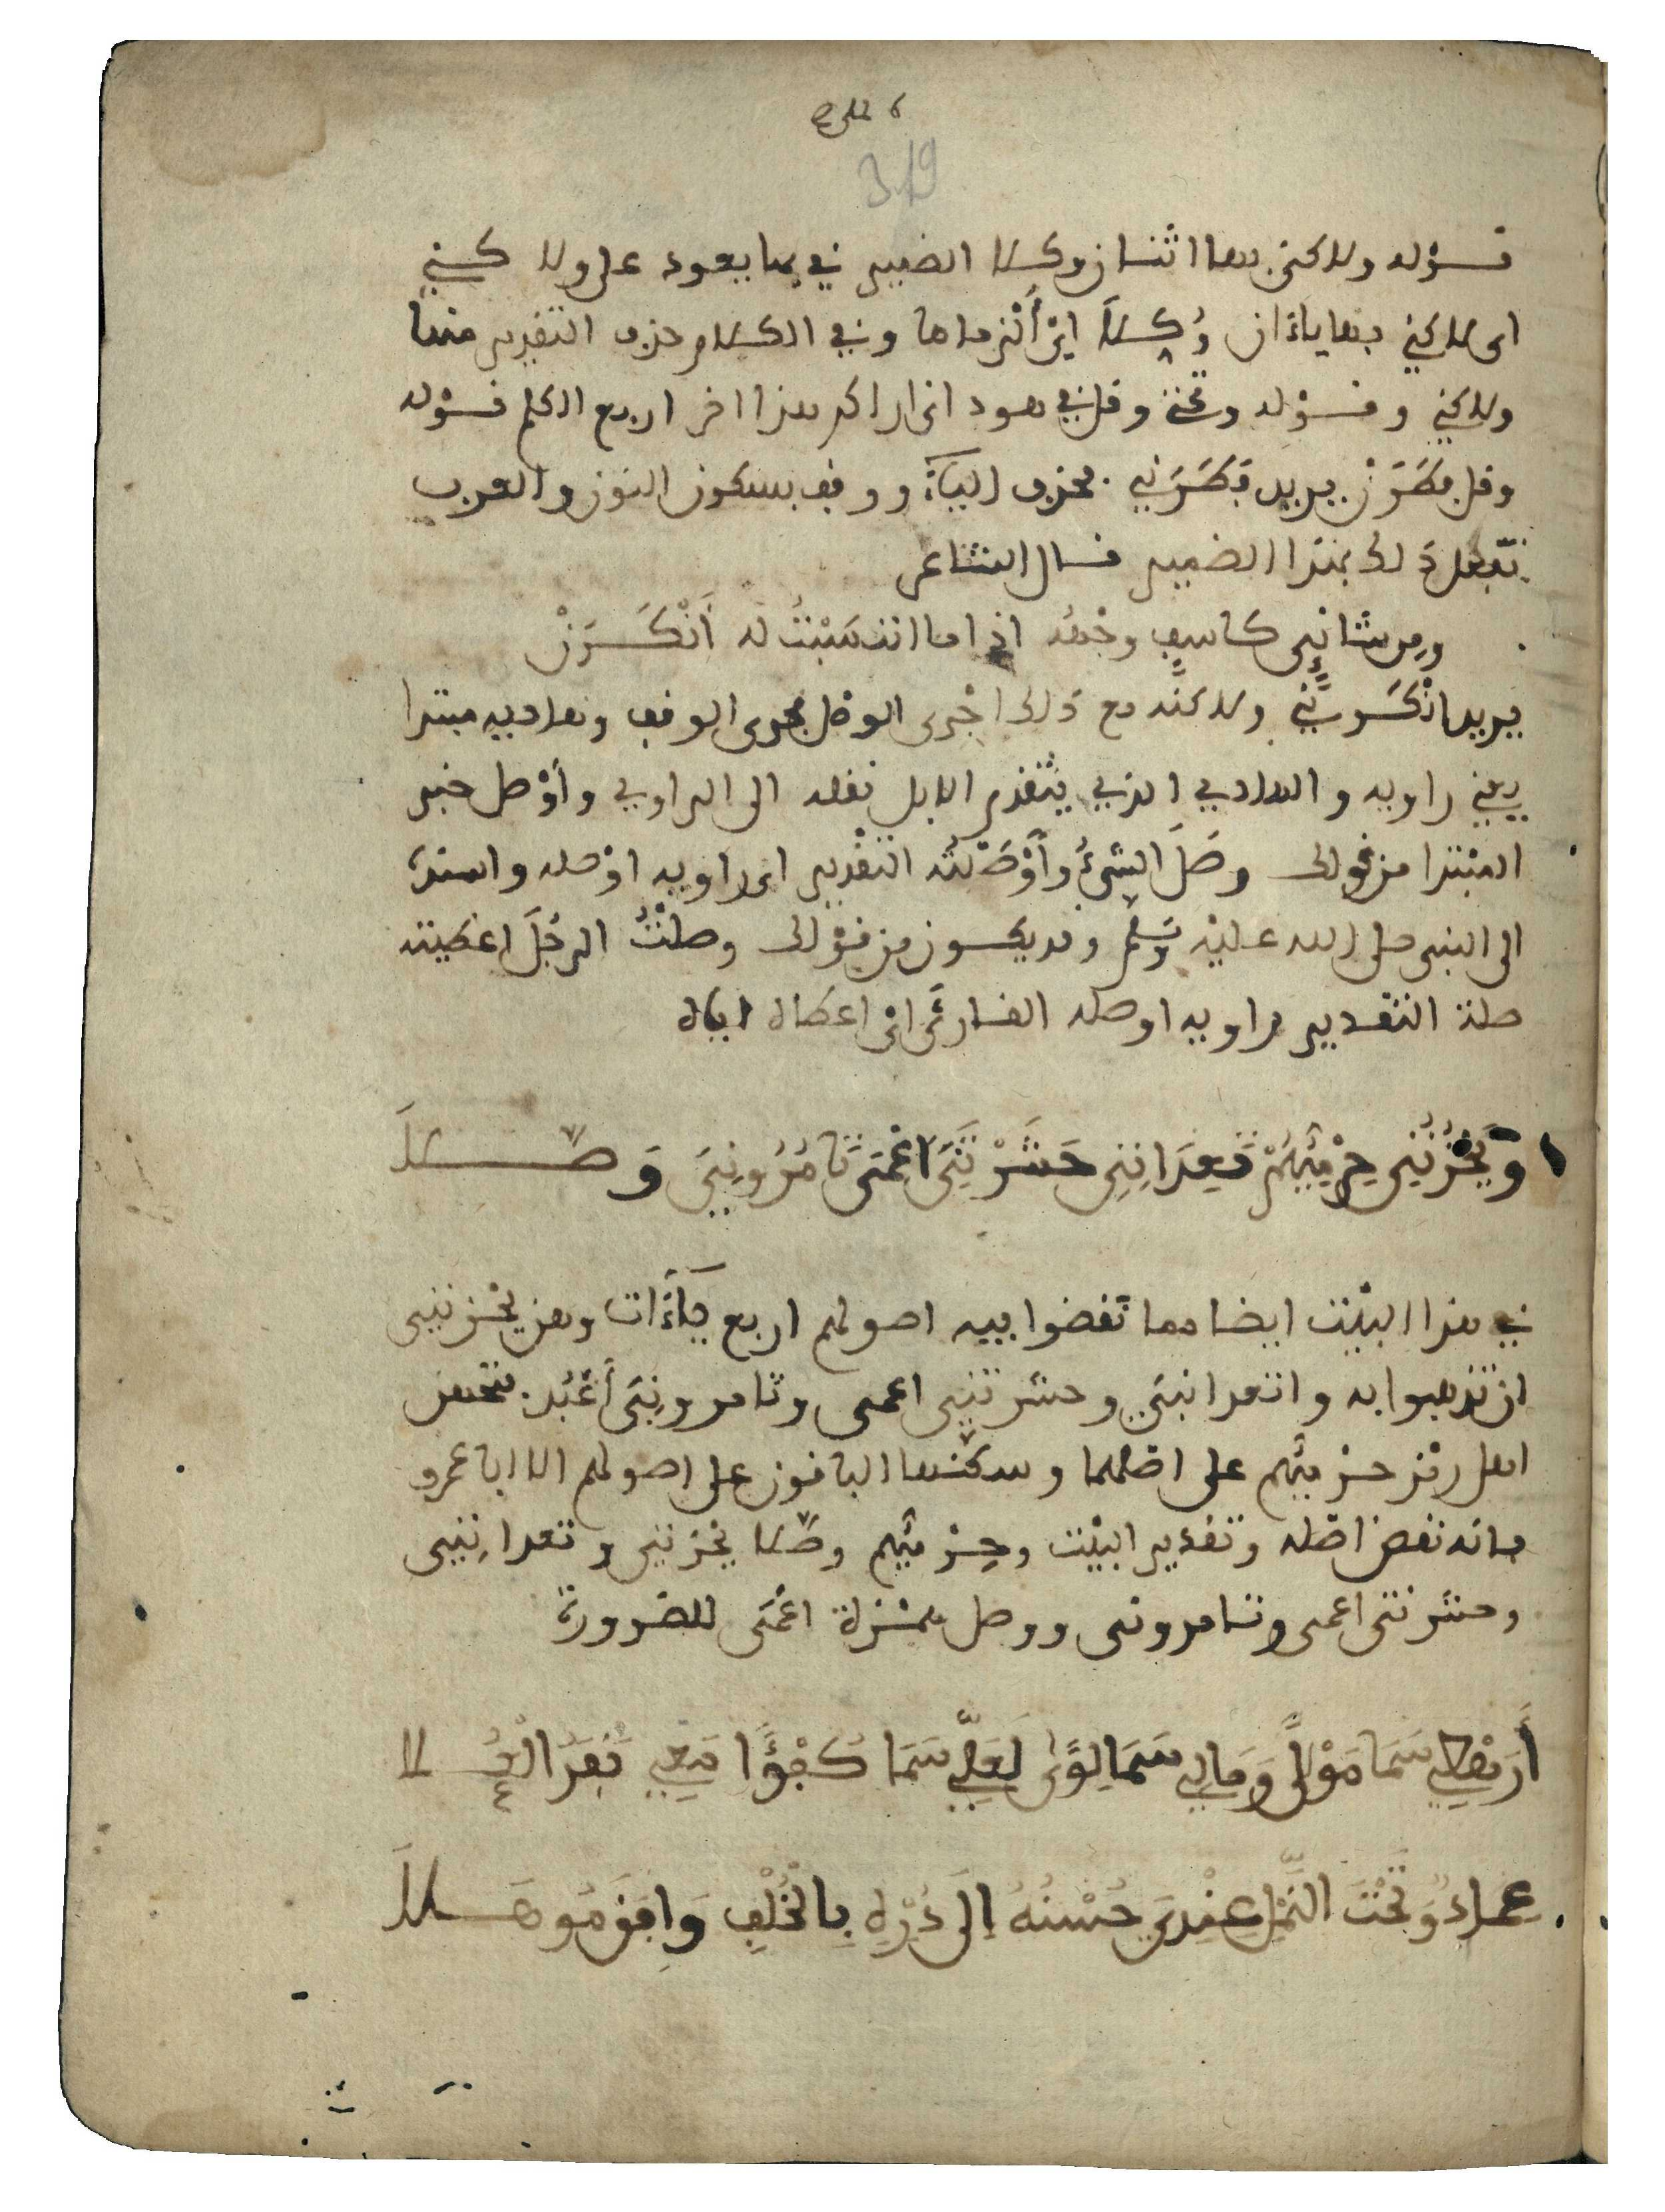 319
قوله ولاكني بها اثنان وكلا الضمير في بها يعود على ولاكني
اى لاكني بها ياءان وُكِلَا اىْ أُلْزماها وفي الكلام حذف التقدير منها
ولاكني وقوله وتحتي وقل في هود اني اراكم هذا اخر اربع الكلم قوله
وقل فطَرَنْ يريد فطَرَني فحذف اليآءَ ووقف بسكون النون والعرب
تفعل ذلك بهذا الضمير قال الشاعر
ومن شانِئٍ كاسِفٍ وجْهُه اذا ما انتسَبْتُ له أَنْكَرَنْ
يريد انْكَرَني ولاكنه مع ذلك اجْرى الوصل مجرى الوقف وهاديه مبتدا
يعني راويه والهادي الذي يتقدم الابل نقله الى الراوي وأوْصل خبر
المبْتدا من قولك وصَلَ الشيءُ وأوْصَلْتُه التقدير اى راويه اوْصله واسنده
الى النبي صلى الله عليْه وسلم وقد يكون من قوْلك وصلْتُ الرجُلَ اعطيته
صلة التقدير راويه اوصله القارئَ اىْ اعطاه اياه
وَيَحْزُنُنِي حِرْمِيُّهُمْ تَعِدَانِنِي حَشَرْتَنِيَ اَعْمَى تَامُرُونِيَ وَصَّلَا
في هذا البيْت ايضا مما نقضوا فيه اصولهم اربع يآءَات وهن يحْزنني
ان تذهبوا به واتعدانني وحشرتني اعمى وتامرونيَ أَعْبُد ففتحهن
اهل رمْز حرْميُّهم على اصْلهما وسكّنها الباقون على اصولهم الا ابا عمرو
فانه نقض اصْله وتقدير البيْت وحِرْميُّهم وصَّلا يحْزنني وتعدانِني
وحشرتني اعمى وتامروني ووصل همْزة اعْمَى للضرورة
أَرَهْطِي سَمَا مَوْلًى وَمَالِي سَمَا لِوًى لَعَلِّي سَمَا كُفْؤًا مَعِي نَفَرُ الْعُلَا
عِمَادٌ وَتَحْتَ النَّمْلِ عِنْدِيَ حُسْنُهُ إِلَى دُرِّهِ بِالْخُلْفِ وَافَقَ مُوهَلَا